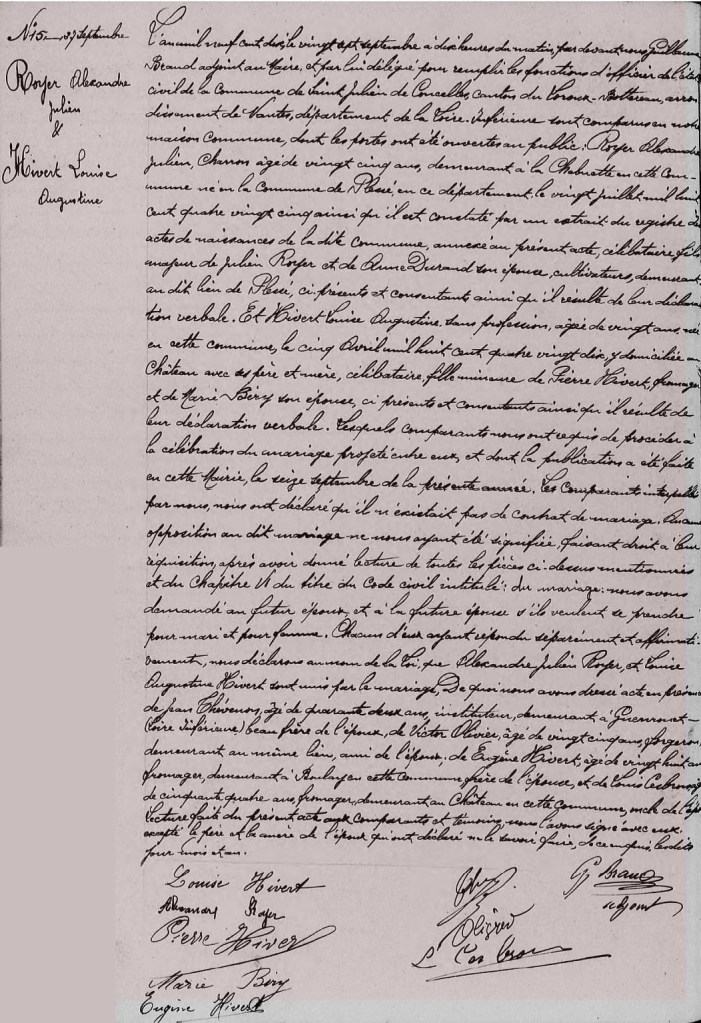 N° 15 - 27 septembre
Royer Alexandre
Julien
&
Hivert Louise
Augustine
L'an mil neuf cent dix, le vingt sept septembre à dix heures du matin, par devant nous, Guillaume
Braud adjoint au Maire, et par lui délégué pour remplir les fonctions d'officier de l'état
civil de la Commune de Saint Julien de Concelles, canton du Loroux-Bottereau, arron
dissement de Nantes, département de la Loire-Inférieure sont comparus en notre
maison Commune, dont les portes ont été ouvertes au public : Royer Alexandre
Julien, Charron âgé de vingt cinq ans, demeurant à la en cette Com-
mune né en la Commune de Plessé, en ce département, le vingt juillet mil huit
cent quatre vingt cinq ainsi qu'il est constaté par un extrait du registre des
actes de naissances de la dite Commune, annexé au présent acte, célibataire, fils
majeur de Julien Royer et de Anne Durand son épouse, cultivateurs, demeurant
au dit lieu de Plessé, ci-présents et consentants ainsi qu'il résulte de leur déclara
tion verbale. Et Hivert Louise Augustine, sans profession, âgée de vingt ans, née
en cette commune, le cinq Avril mil huit cent quatre vingt dix, y domiciliée au
Château avec ses père et mère, célibataire, fille mineure de Pierre Hivert, fromager
et de Marie Biry son épouse, ci présents et consentants ainsi qu'il résulte de
leur déclaration verbale. Lesquels comparants nous ont requis de procéder à
la célébration du mariage projeté entre eux, et dont la publication a été faite
en cette Mairie, le seize septembre de la présente année. Les Comparants interpellés
par nous, nous ont déclaré qu'il n'existait pas de contrat de mariage. Aucune
opposition au dit mariage ne nous ayant été signifiée, faisant droit à leur
réquisition, après avoir donné lecture de toutes les pièces ci-dessus mentionnées
et du Chapitre VI du titre du Code civil intitulé : du mariage : nous avons
demandé au futur époux, et à la future épouse s'ils veulent se prendre
pour mari et pour femme. Chacun d'eux ayant répondu séparément et affirmati-
vement, nous déclarons au nom de la Loi, que Alexandre Julien Royer, et Louise
Augustine Hivert sont unis par le mariage. De quoi nous avons dressé acte en présence
de Jean Thévenon, âgé de quarante deux ans, instituteur, demeurant à Guenrouet-
(Loire Inférieure) beau frère de l'époux, de Victor Olivier, âgé de vingt cinq ans, forgeron,
demeurant au même lieu, ami de l'époux ; de Eugène Hivert, âgé de vingt huit ans
fromager, demeurant à en cette commune, frère de l'épouse, et de Louis âgé
de cinquante quatre ans, fromager, demeurant au Château en cette Commune, oncle de l'épse
Lecture faite du présent acte aux comparants et témoins, nous l'avons signé avec eux
excepté le père et la mère de l'époux qui ont déclaré ne le savoir faire, de ce enquis, lesdits
jour mois et an.
Louise Hivert
Alexandre Royer
Pierre Hivert
Marie Biry
Eugène Hivert
G Braud
adjoint